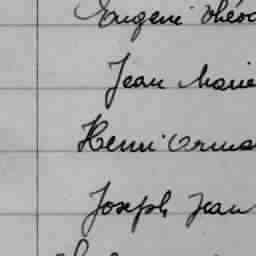 Eugene Théod
Jean Marie
Henri Orma
Joseph Jean